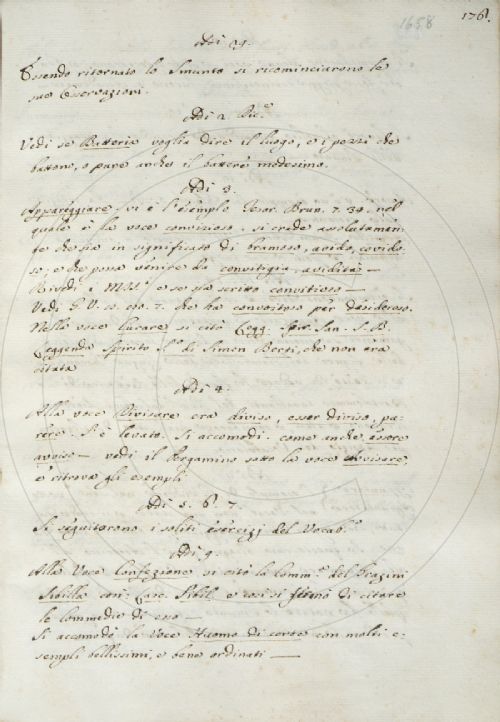 1658
176.
Adi 29.
Essendo ritornato lo Smunto si ricominciarono le
sue Osservazioni.
Adi 2 Dic.e
Vedi se Batteria voglia dire il luogo, e i pezzi che
battono, o pure anche il battere medesimo.
Adi 3.
Appareggiare ivi è l'esemplo Tesor. Brun. 7. 34. nel
quale è la voce convizioso. si crede assolutamen-
te che sia in significato di bramoso, avido, covido-
so; e che possa venire da convitigia, avidità —
Rived. i MSS.ti e se sta scritto convitioso —
Vedi G. V. 10. 7. che ha convoitoso per desideroso.
Nella voce Lucare si citò Legg. Spir. San. S. B.
Leggenda Spirito S.to di Simon Berti, che non era
citata
Adi 4.
Alla voce Divisare era diviso, esser diviso, pa-
rere. S'è levato. Si accomodi. come anche essere
avviso — vedi il Pergamino sotto la voce Avvisare,
e ritrova gli esempli
Adi 5. 6. 7.
Si seguitorono i soliti esercizj del Vocab.o
Adi 9.
Alla Voce Confezione si citò la Comm.a del Grazini
Sibilla con: Lasc. Sibil. e così si stimò di citare
le commedie di esso —
Si accomodò la Voce Huomo di corte con molti e-
sempli bellissimi, e bene ordinati —